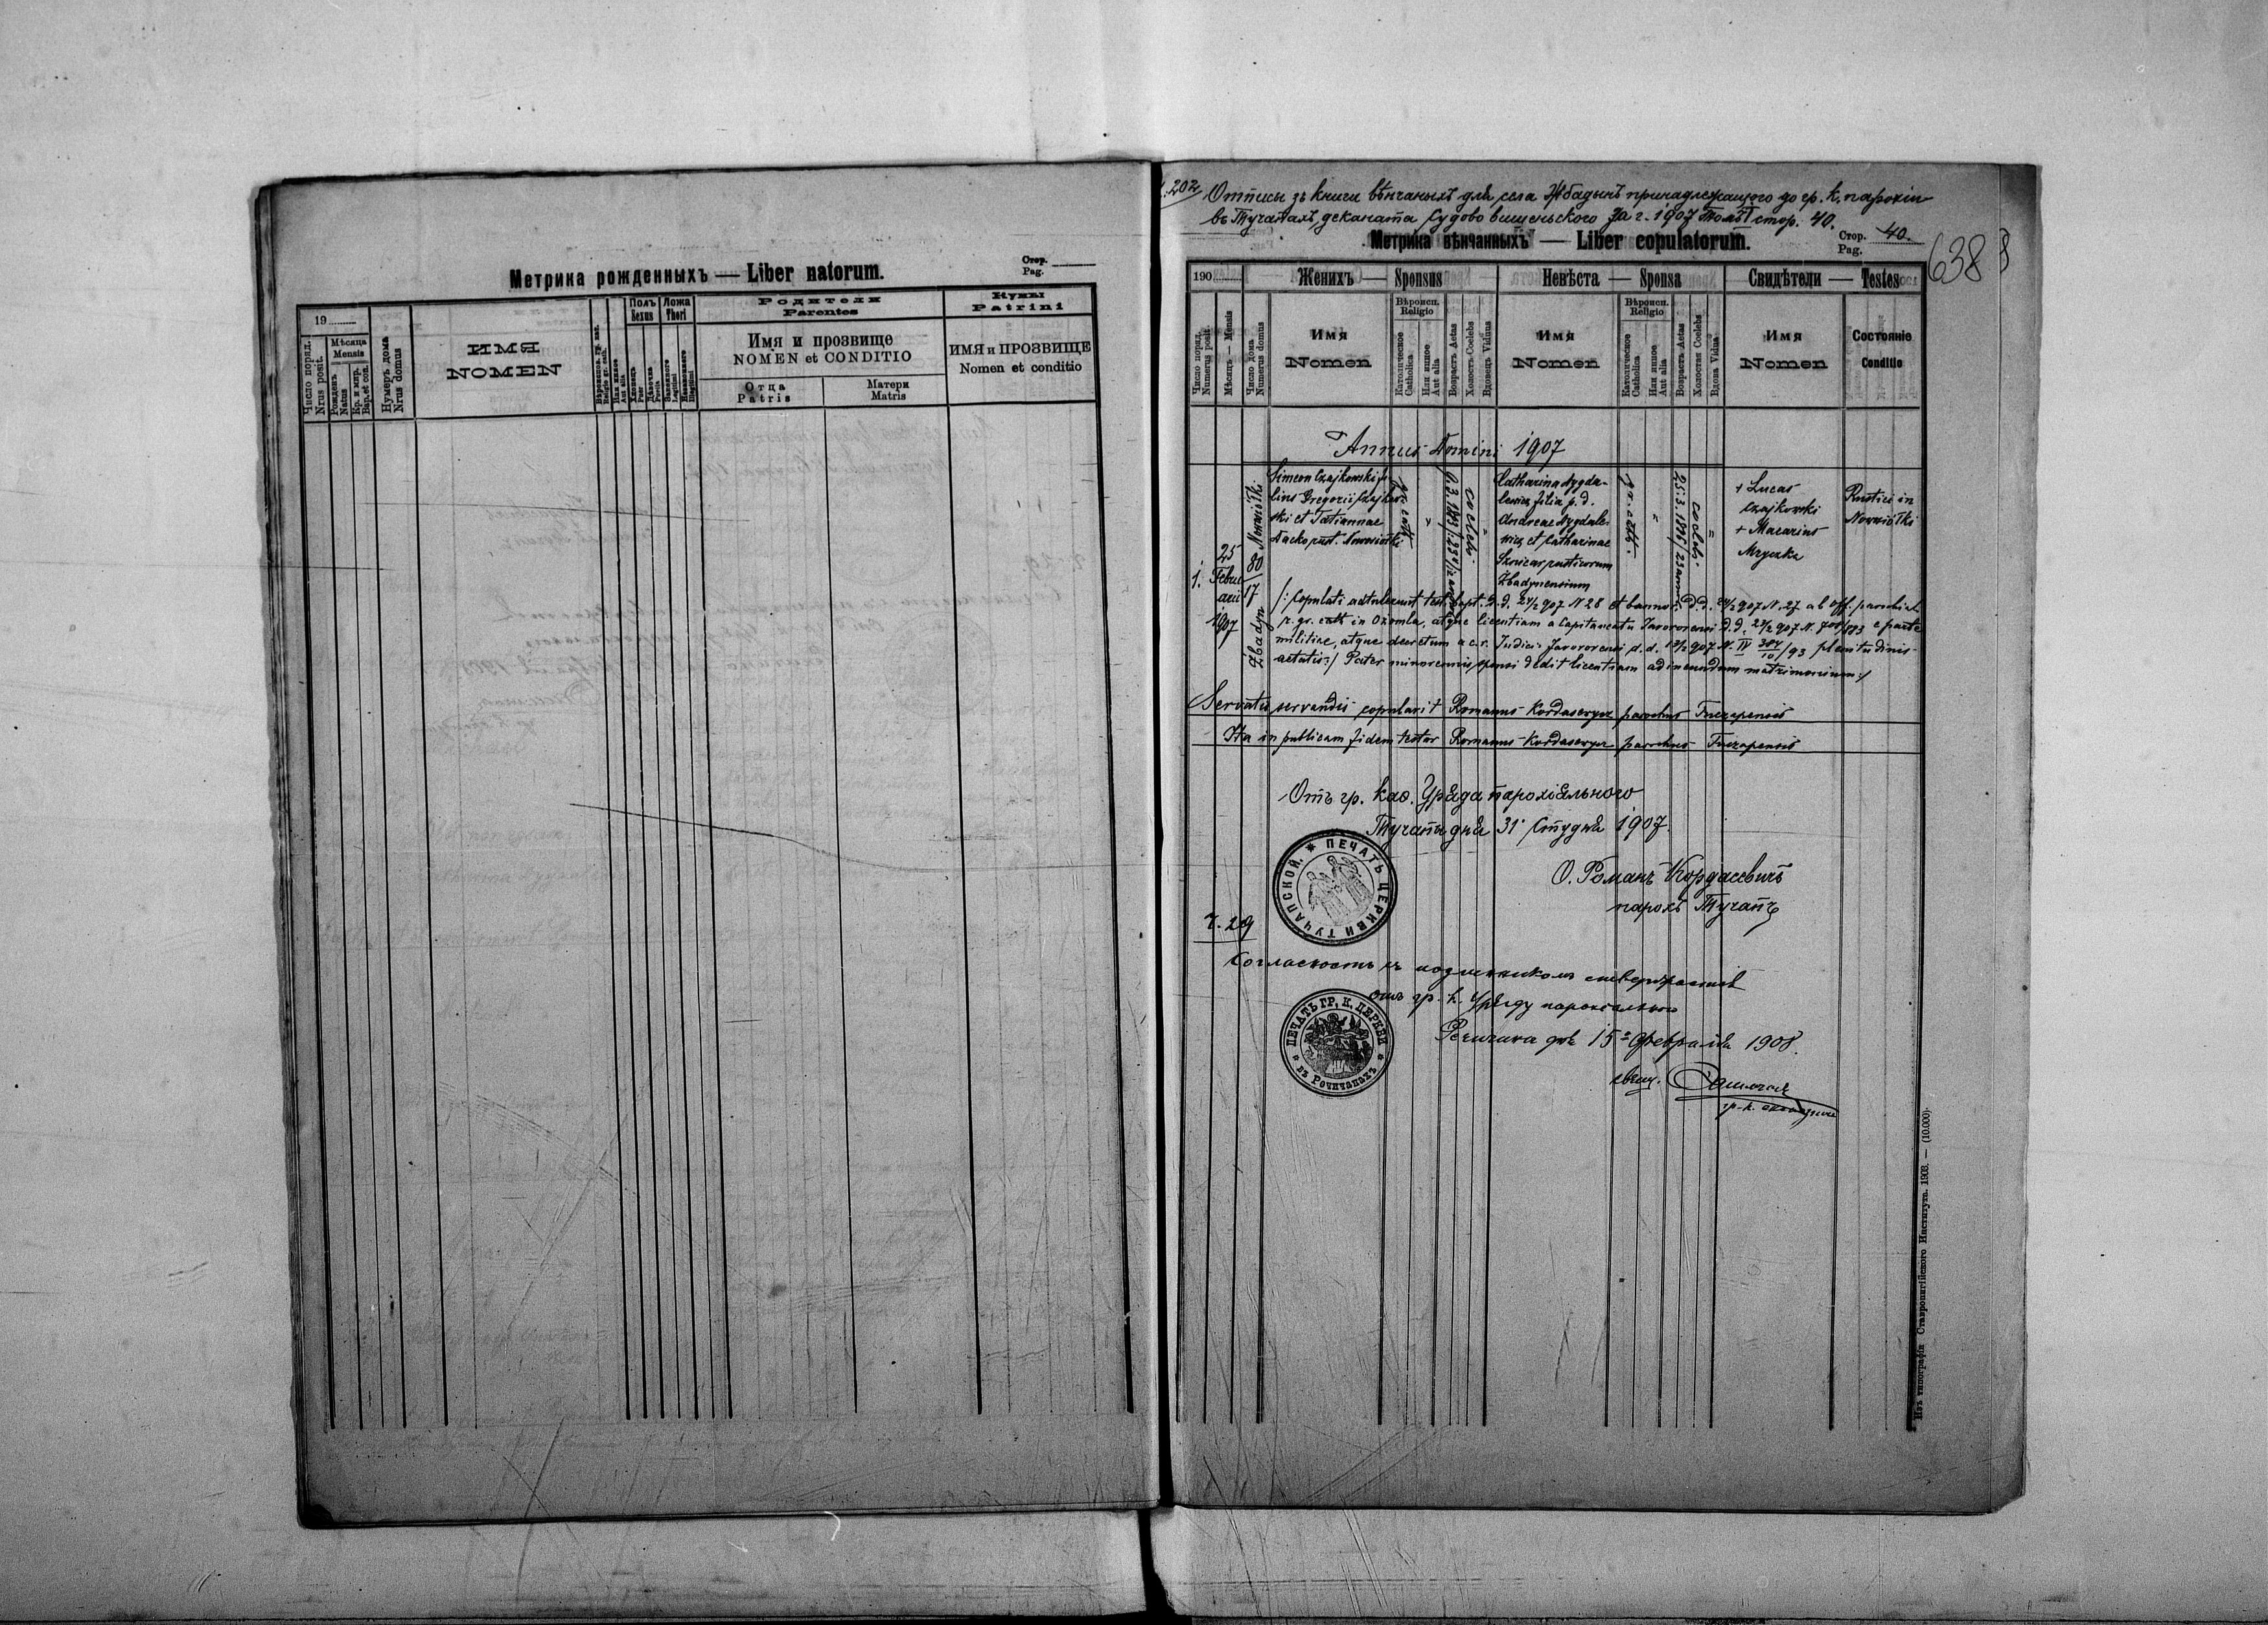 Метрика рожденныхъ — Liber natorum.
Стор.
Pag.
19
Число поряд.
Nrus posit.
Мѣсяца
Mensis
Рожденъ
Natus
Кр. и мир.
Bap. et con.
Нумеръ дома
Nrus domus
ИМЯ
NOMEN
Или иное
Aut alia
Полъ
Sexus
Хлопецъ
Puer
Дѣвочка
Puella
Ложа
Thori
Законного
Legitimi
Незаконного
Illegitimi
Родители
Parentes
Имя и прозвище
NOMEN et CONDITIO
Отца
Patris
Матери
Matris
Кумы
Patrini
ИМЯ и ПРОЗВИЩЕ
Nomen et conditio
202
Отписъ зъ книги вѣнчаныхъ для села Жбадынъ принадлежащого до гр. к. парохіи
въ Тучапахъ, деканата Судово вишеньского за г. 1907 Томъ I стор. 40.
Метрика вѣнчанныхъ — Liber copulatorum.
Стор.
Pag.
40.
638
190
Женихъ — Sponsus
Невѣста — Sponsa
Свидѣтели — Testes
Число поряд.
Numerus posit.
Мѣсяцъ — Mensis
Число дома
Numerus domus
Имя
Nomen
Вѣроисп.
Religio
Католическое
Catholica
Или инное
Aut alia
Возрастъ Aetas
Холостъ Coelebs
Вдовецъ Viduus
Имя
Nomen
Вѣроисп.
Religio
Католическое
Catholica
Или инное
Aut alia
Возрастъ Aetas
Холостая Coelebs
Вдова Vidua
Имя
Nomen
Состояніе
Conditio
Annus Domini 1907
1.
25
Februarii
1907
Nowosiółki
80
17
Żbadyn
Simeon Czajkowski fi-
lius Gregorii Czajkow-
ski et Tatiannae
Dacko rust. Nowosiółki
gr. cath.
coelebs
Catharina Mygda-
lewicz filia p. d.
Andreae Mygdale-
wicz et Catharinae
rusticorum
Żbadynensium
gr. cath.
coelebs
+ Lucas
Czajkowski
+ Macarius
Mryczka
Rustici in
Nowosiółki
/: Copulati adtulerunt test. bapt. d. d. 24/2 907 N. 28 et bannor. d. d. 24/2 907 N. 27 ab off. paroch
r. gr. cath in Ożomla, atque licentiam a Capitaneatu Javoroviensi d. d. 22/2 907 N. e parte
militiae, atque decretum a c. r. Judicii Javoroviensi d. d. 907 N. IV 93 plenitudinis
aetatis :/ Pater minorennis sponsi dedit licentiam ad ineundum matrimonium :/
Servatis servandis copulavit Romanus Kordasewycz parochus Tuczapensis
Ita in publicam fidem testor Romanus Kordasewycz parochus Tuczapensis
Отъ гр. каѳ. Уряда парохіяльного
Тучапы дня 31 Студня 1907.
О. Романъ Кордасевичъ
парохъ Тучапъ
* ПЕЧАТЬ ЦЕРКВИ ТУЧАПСКОЙ.
Ч. 29
Согласность съ подлинникомъ
отъ гр. к. Уряду парохіального
Речичаны дня 15 Февраля 1908.
ПЕЧАТЬ ГР. К. ЦЕРКВИ
* въ Рочичанахъ *
свящ.
гр.-к.
Изъ типографіи Ставропигійского Института. 1903. — (10.000).